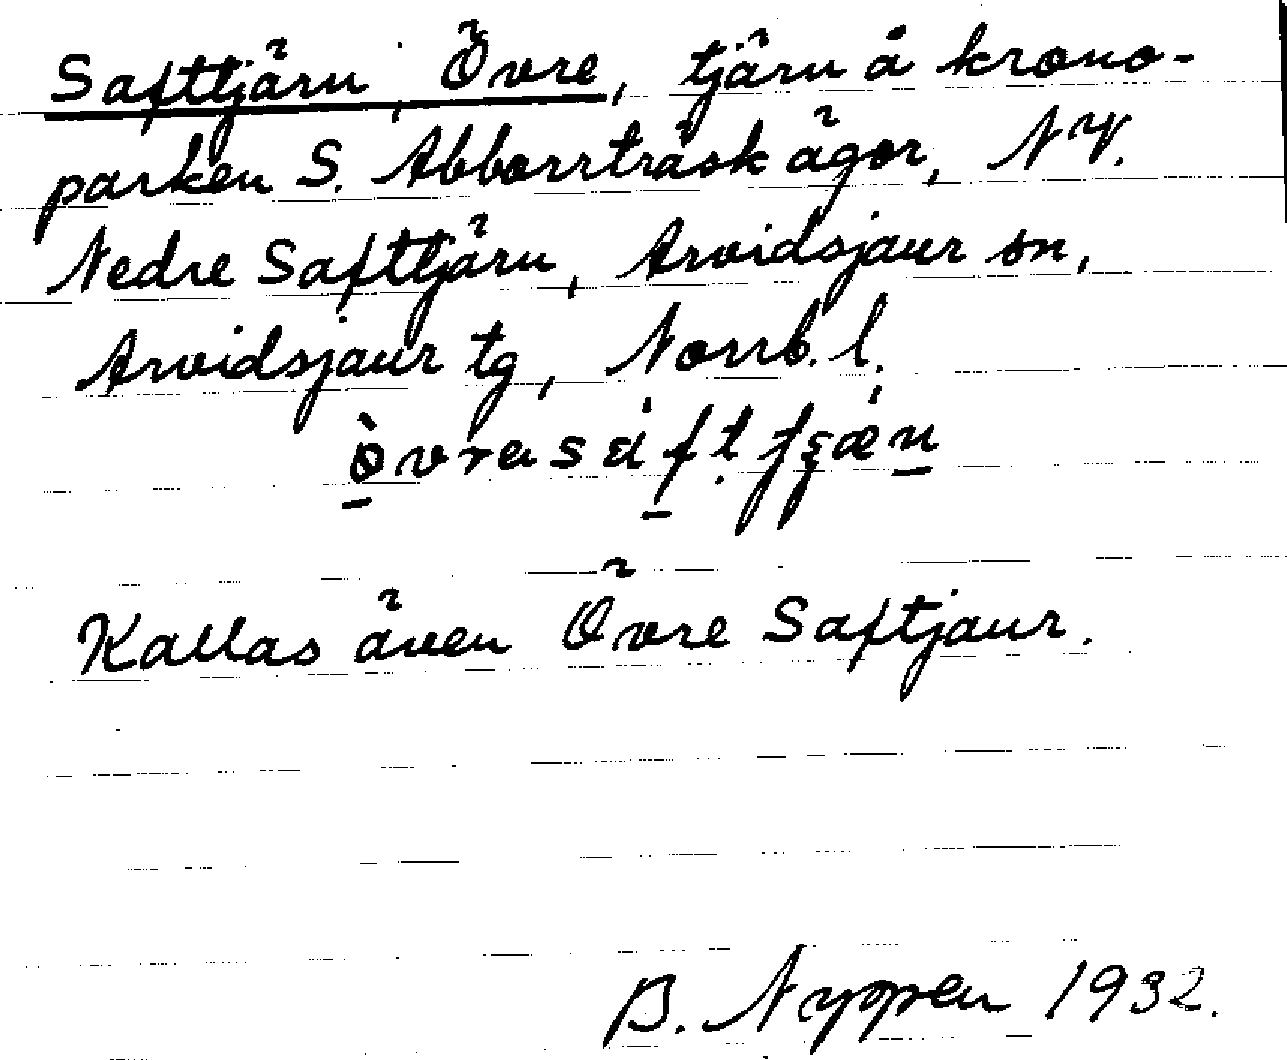 Safttjärn, Övre, tjärn å krono-
parken S. Abborrträsk ägor, NV.
Nedre Safttjärn, Arvidsjaur sn,
Arvidsjaur tg, Norrb. l.
Kallas även Övre Saftjaur.
B. Nyppen 1932.